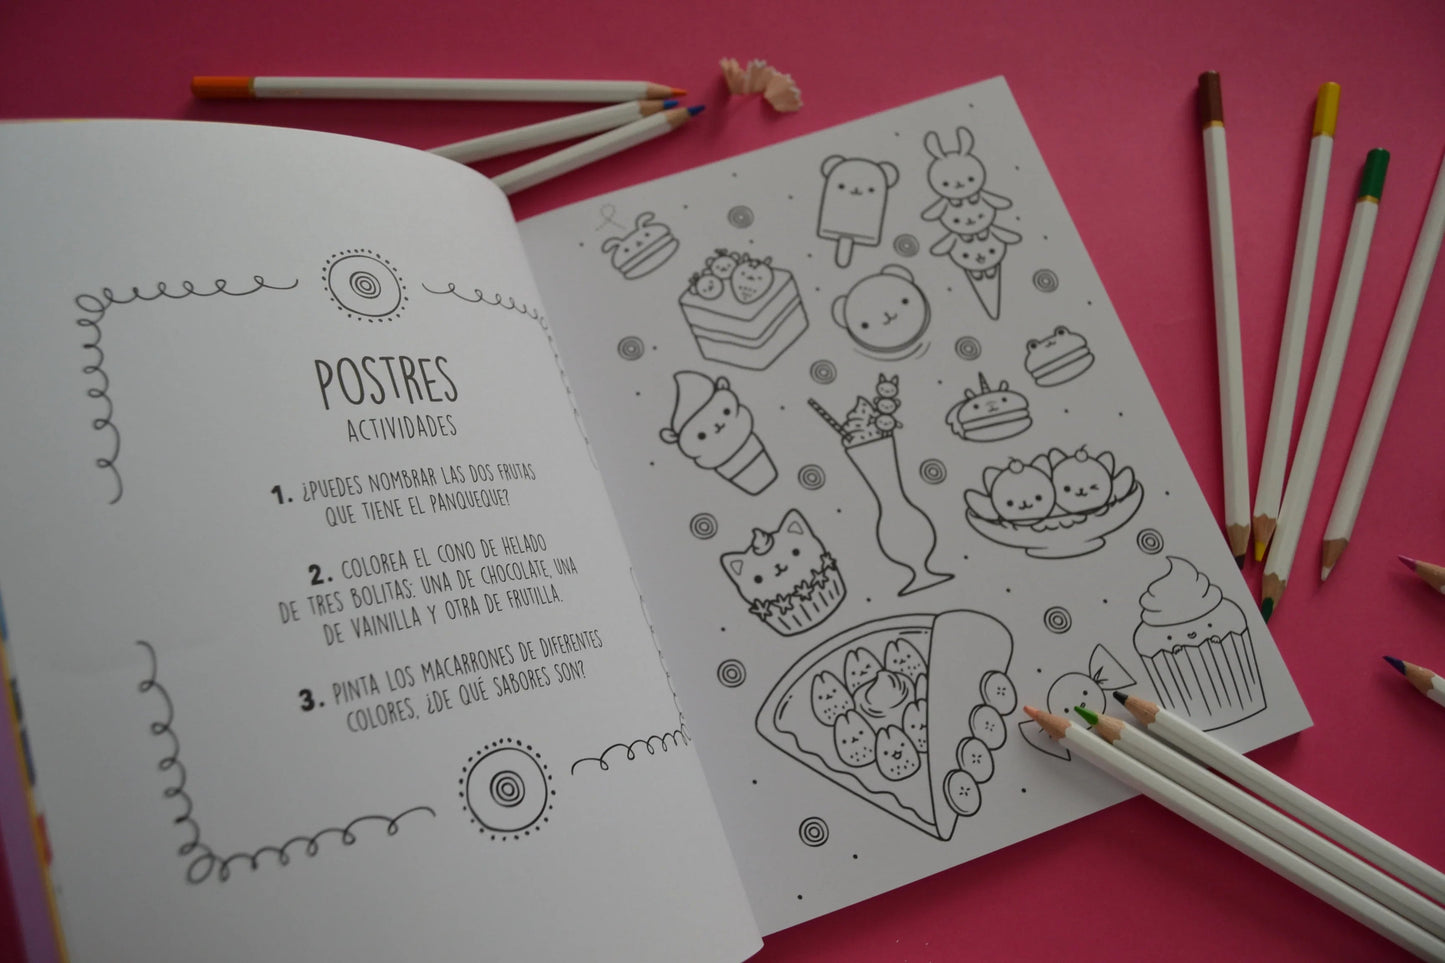 POSTRES
ACTIVIDADES
1. ¿PUEDES NOMBRAR LAS DOS FRUTAS
QUE TIENE EL PANQUEQUE?
2. COLOREA EL CONO DE HELADO
DE TRES BOLITAS: UNA DE CHOCOLATE, UNA
DE VAINILLA Y OTRA DE FRUTILLA.
3. PINTA LOS MACARRONES DE DIFERENTES
COLORES, ¿DE QUÉ SABORES SON?